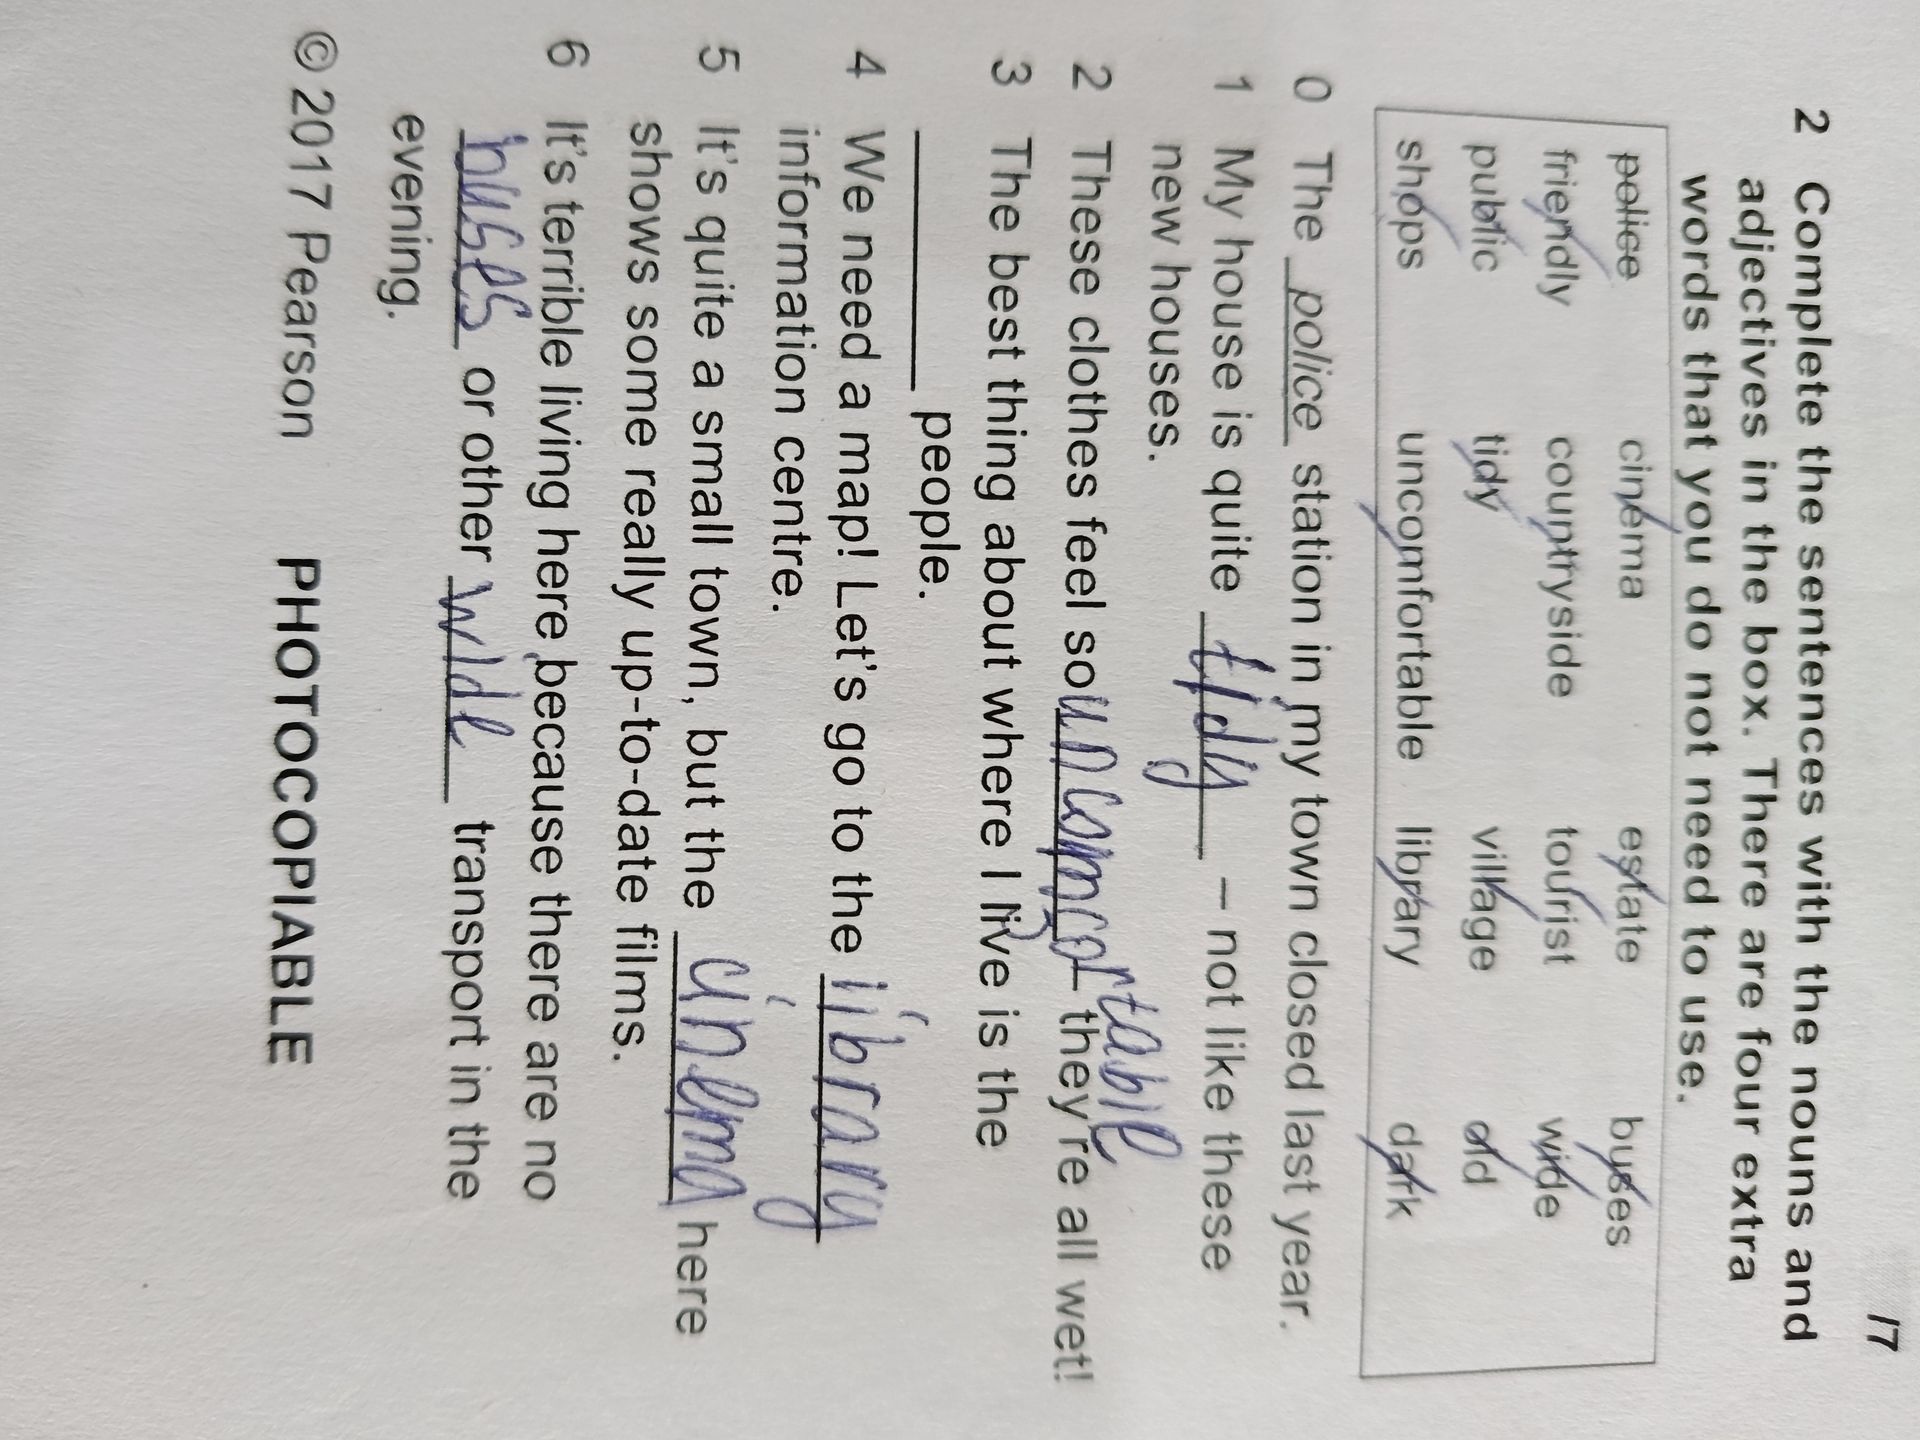 /7
2 Complete the sentences with the nouns and
adjectives in the box. There are four extra
words that you do not need to use.
police cinema estate buses
friendly countryside tourist wide
public tidy village old
shops uncomfortable library dark
0 The police station in my town closed last year.
1 My house is quite tidy – not like these
new houses.
2 These clothes feel so uncomcortable they're all wet!
3 The best thing about where I live is the
people.
4 We need a map! Let's go to the library
information centre.
5 It's quite a small town, but the cinema here
shows some really up-to-date films.
6 It's terrible living here because there are no
buses or other wide transport in the
evening.
© 2017 Pearson PHOTOCOPIABLE